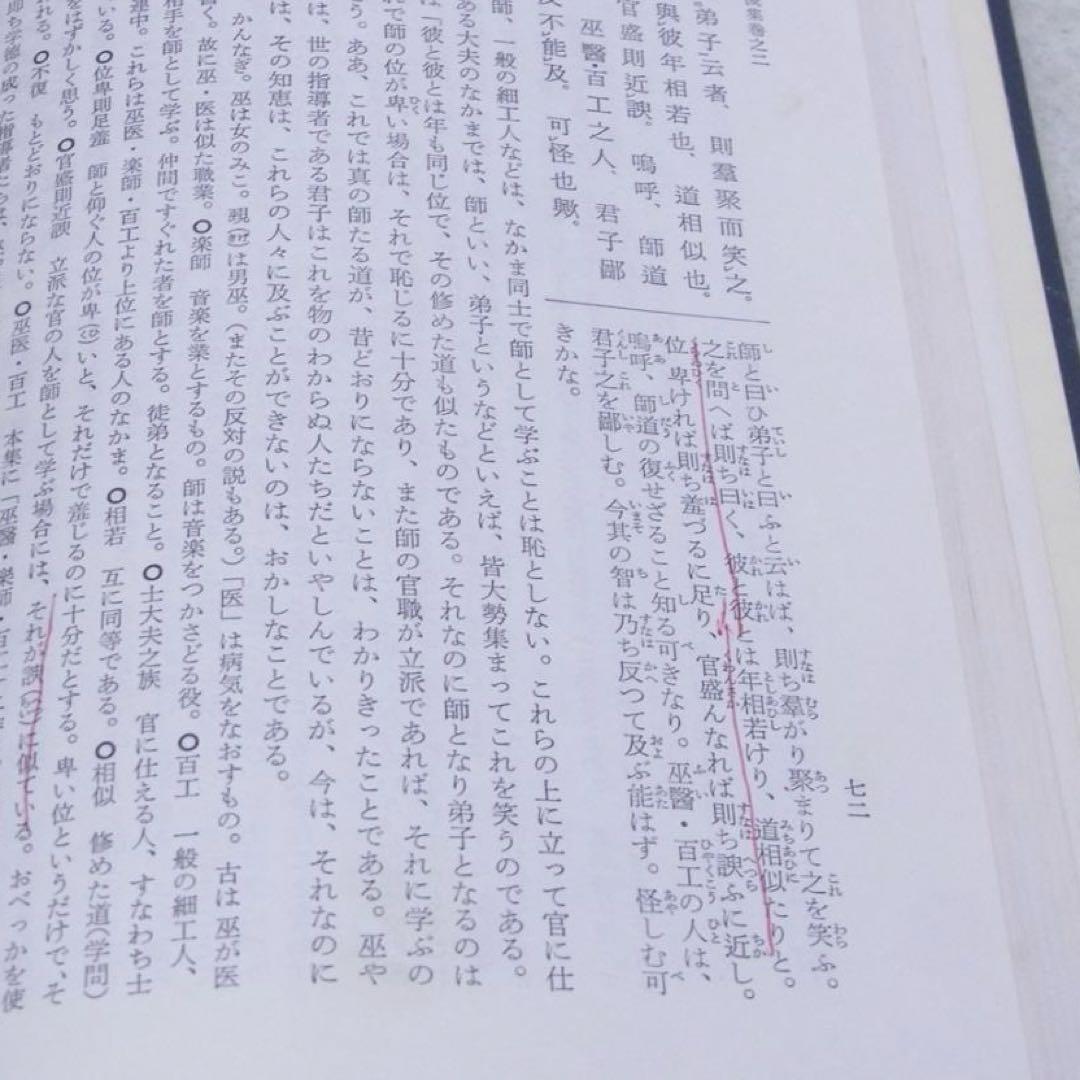 集巻之二
七二
弟子云者、則羣聚而笑之。
與彼年相若也、道相似也。
官盛則近諛。嗚呼、師道
巫醫・百工之人、君子鄙
不能及。可怪也歟。
師と曰ひ弟子と曰ふと云はば、則ち羣がり聚まりて之を笑ふ。
之を問へば則ち曰く、彼と彼とは年相若けり、道相似たりと。
位卑ければ則ち羞づるに足り、官盛んなれば則ち諛ふに近し。
嗚呼、師道の復せざること知る可きなり。巫醫・百工の人は、
君子之を鄙しむ。今其の智は乃ち反つて及ぶ能はず。怪しむ可
きかな。
師、一般の細工人などは、なかま同士で師として学ぶことは恥としない。これらの上に立って官に仕
ある大夫のなかまでは、師といい、弟子というなどといえば、皆大勢集まってこれを笑うのである。
は「彼と彼とは年も同じ位で、その修めた道も似たものである。それなのに師となり弟子となるのは
れで師の位が卑い場合は、それで恥じるに十分であり、また師の官職が立派であれば、それに学ぶの
う。ああ、これでは真の師たる道が、昔どおりにならないことは、わかりきったことである。巫や
は、世の指導者である君子はこれを物のわからぬ人たちだといやしんでいるが、今は、それなのに
は、その知恵は、これらの人々に及ぶことができないのは、おかしなことである。
かんなぎ。巫は女のみこ。覡は男巫。（またその反対の説もある。）「医」は病気をなおすもの。古は巫が医
く。故に巫・医は似た職業。〇楽師　音楽を業とするもの。師は音楽をつかさどる役。〇百工　一般の細工人、
相手を師として学ぶ。仲間ですぐれた者を師とする。徒弟となること。〇士大夫之族　官に仕える人、すなわち士
連中。これらは巫医・楽師・百工より上位にある人のなかま。〇相若　互に同等である。〇相似　修めた道（学問）
いる。〇位卑則足羞　師と仰ぐ人の位が卑いと、それだけで羞じるのに十分だとする。卑い位というだけで、そ
をはずかしく思う。〇官盛則近諛　立派な官の人を師として学ぶ場合には、それが諛に似ている。おべっかを使
れる。〇不復　もとどおりにならない。〇巫医・百工　本集に「巫醫・樂師・百工